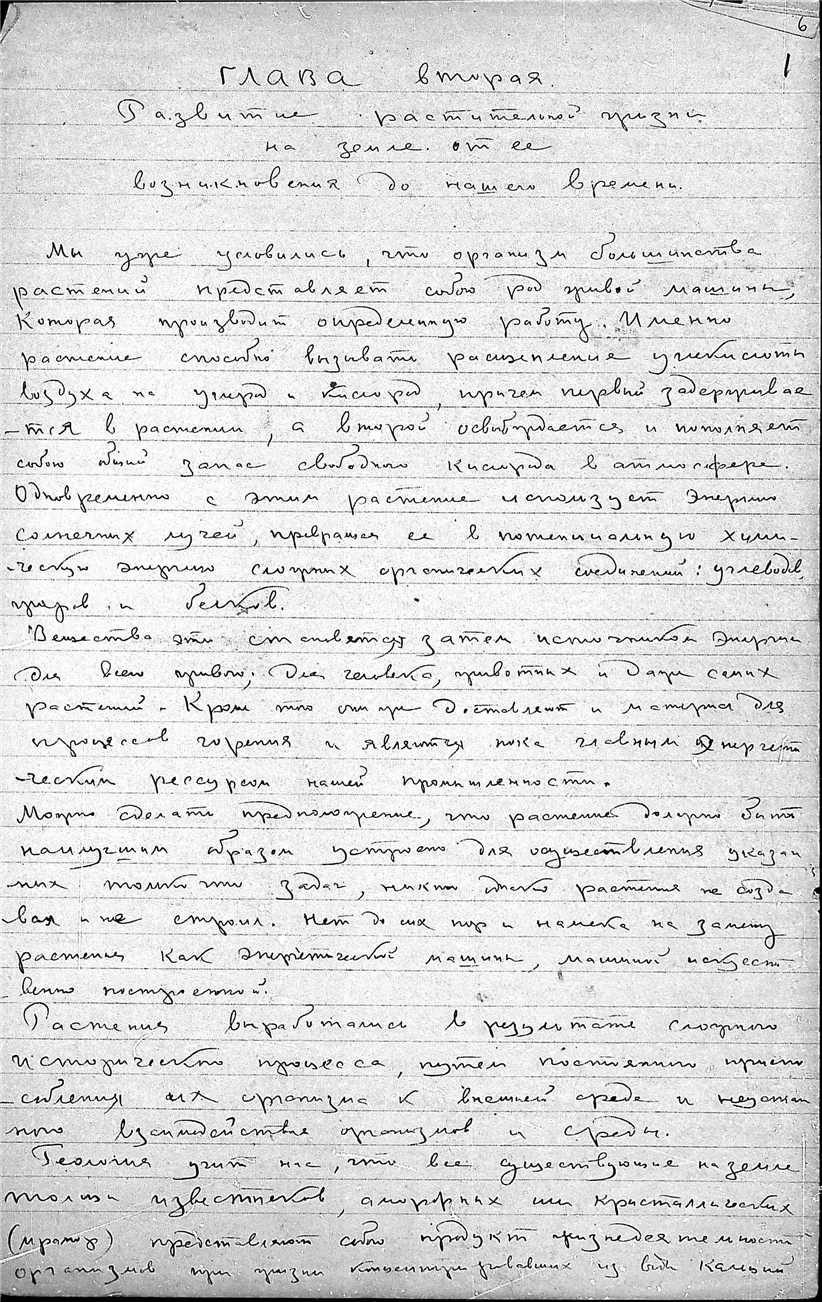 6
1
ГЛАВА вторая.
Развитие растительной жизни
на земле от ее
возникновения до нашего времени.
Мы уже условились, что организм большинства
растений представляет собою род живой машины,
которая производит определенную работу. Именно
растение способно вызывать расщепление углекислоты
воздуха на углерод и кислород, причем первый задерживае
-тся в растении, а второй освобождается и пополняет
собою общий запас свободного кислорода в атмосфере.
Одновременно с этим растение использует энергию
солнечных лучей, превращая ее в потенциальную хими-
-ческую энергию сложных органических соединений: углеводов,
жиров и белков.
Вещества эти становятся затем источником энергии
для всего живого; для человека, животных и даже самих
растений. Кроме того они же доставляют и материал для
процессов горения и являются пока главным энергети
-ческим рессурсом нашей промышленности.
Можно сделать предположение, что растение должно быть
наилучшим образом устроено для осуществления указан
ных только что задач, никто однако растения не созда
вал и не строил. Нет до сих пор и намека на замену
растения как энергетической машины, машиной искусст
венно построенной.
Растения выработались в результате сложного
исторического процесса, путем постоянного приспо
-собления их организма к внешней среде и
ного взаимодействия организмов и среды.
Геология учит нас, что все существующие на земле
толщи известняков, аморфных или кристаллических
(мрамор) представляют собою продукт жизнедеятельности
организмов при жизни концентрировавших из воды кальций